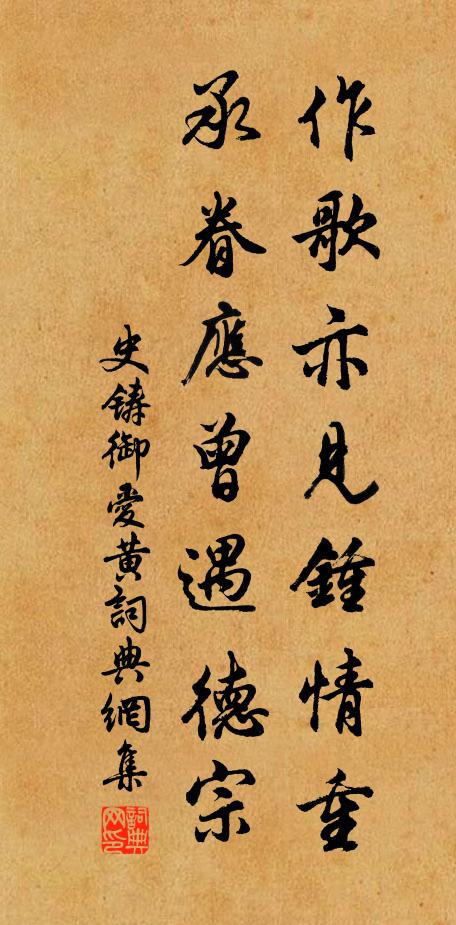 作歌亦見鍾情重
承眷應曾遇德宗
史鑄御愛黃詞典網集
詞典网印